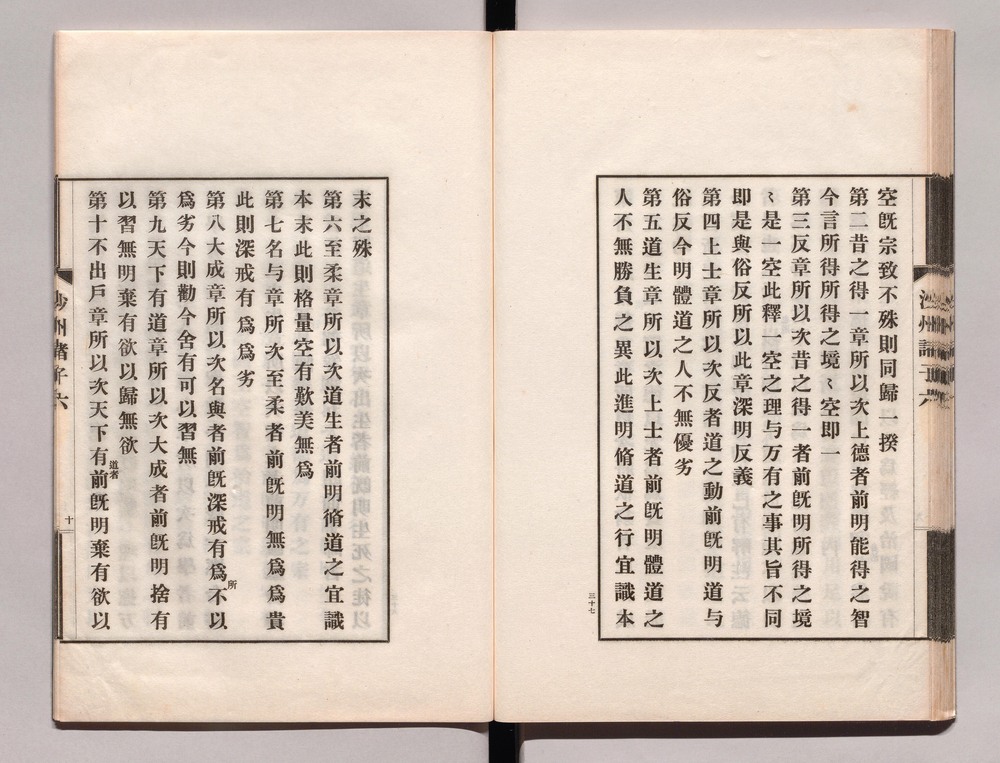 空旣宗致不殊則同歸一揆
第二昔之得一章所以次上德者前明能得之智
今言所得所得之境〻空即一
第三反章所以次昔之得一者前旣明所得之境
〻是一空此釋一空之理与万有之事其旨不同
即是與俗反所以此章深明反義
第四上士章所以次反者道之動前旣明道与
俗反今明體道之人不無優劣
第五道生章所以次上士者前旣明體道之
人不無勝負之異此進明脩道之行宜識本
三十七
末之殊
第六至柔章所以次道生者前明脩道之宜識
本末此則格量空有歎美無爲
第七名与章所次至柔者前旣明無爲爲貴
此則深戒有爲爲劣
第八大成章所以次名與者前旣深戒有爲所不以
爲劣今則勸今舍有可以習無
第九天下有道章所以次大成者前旣明捨有
以習無明棄有欲以歸無欲
第十不出戶章所以次天下有道者前旣明棄有欲以
州諸子六
十